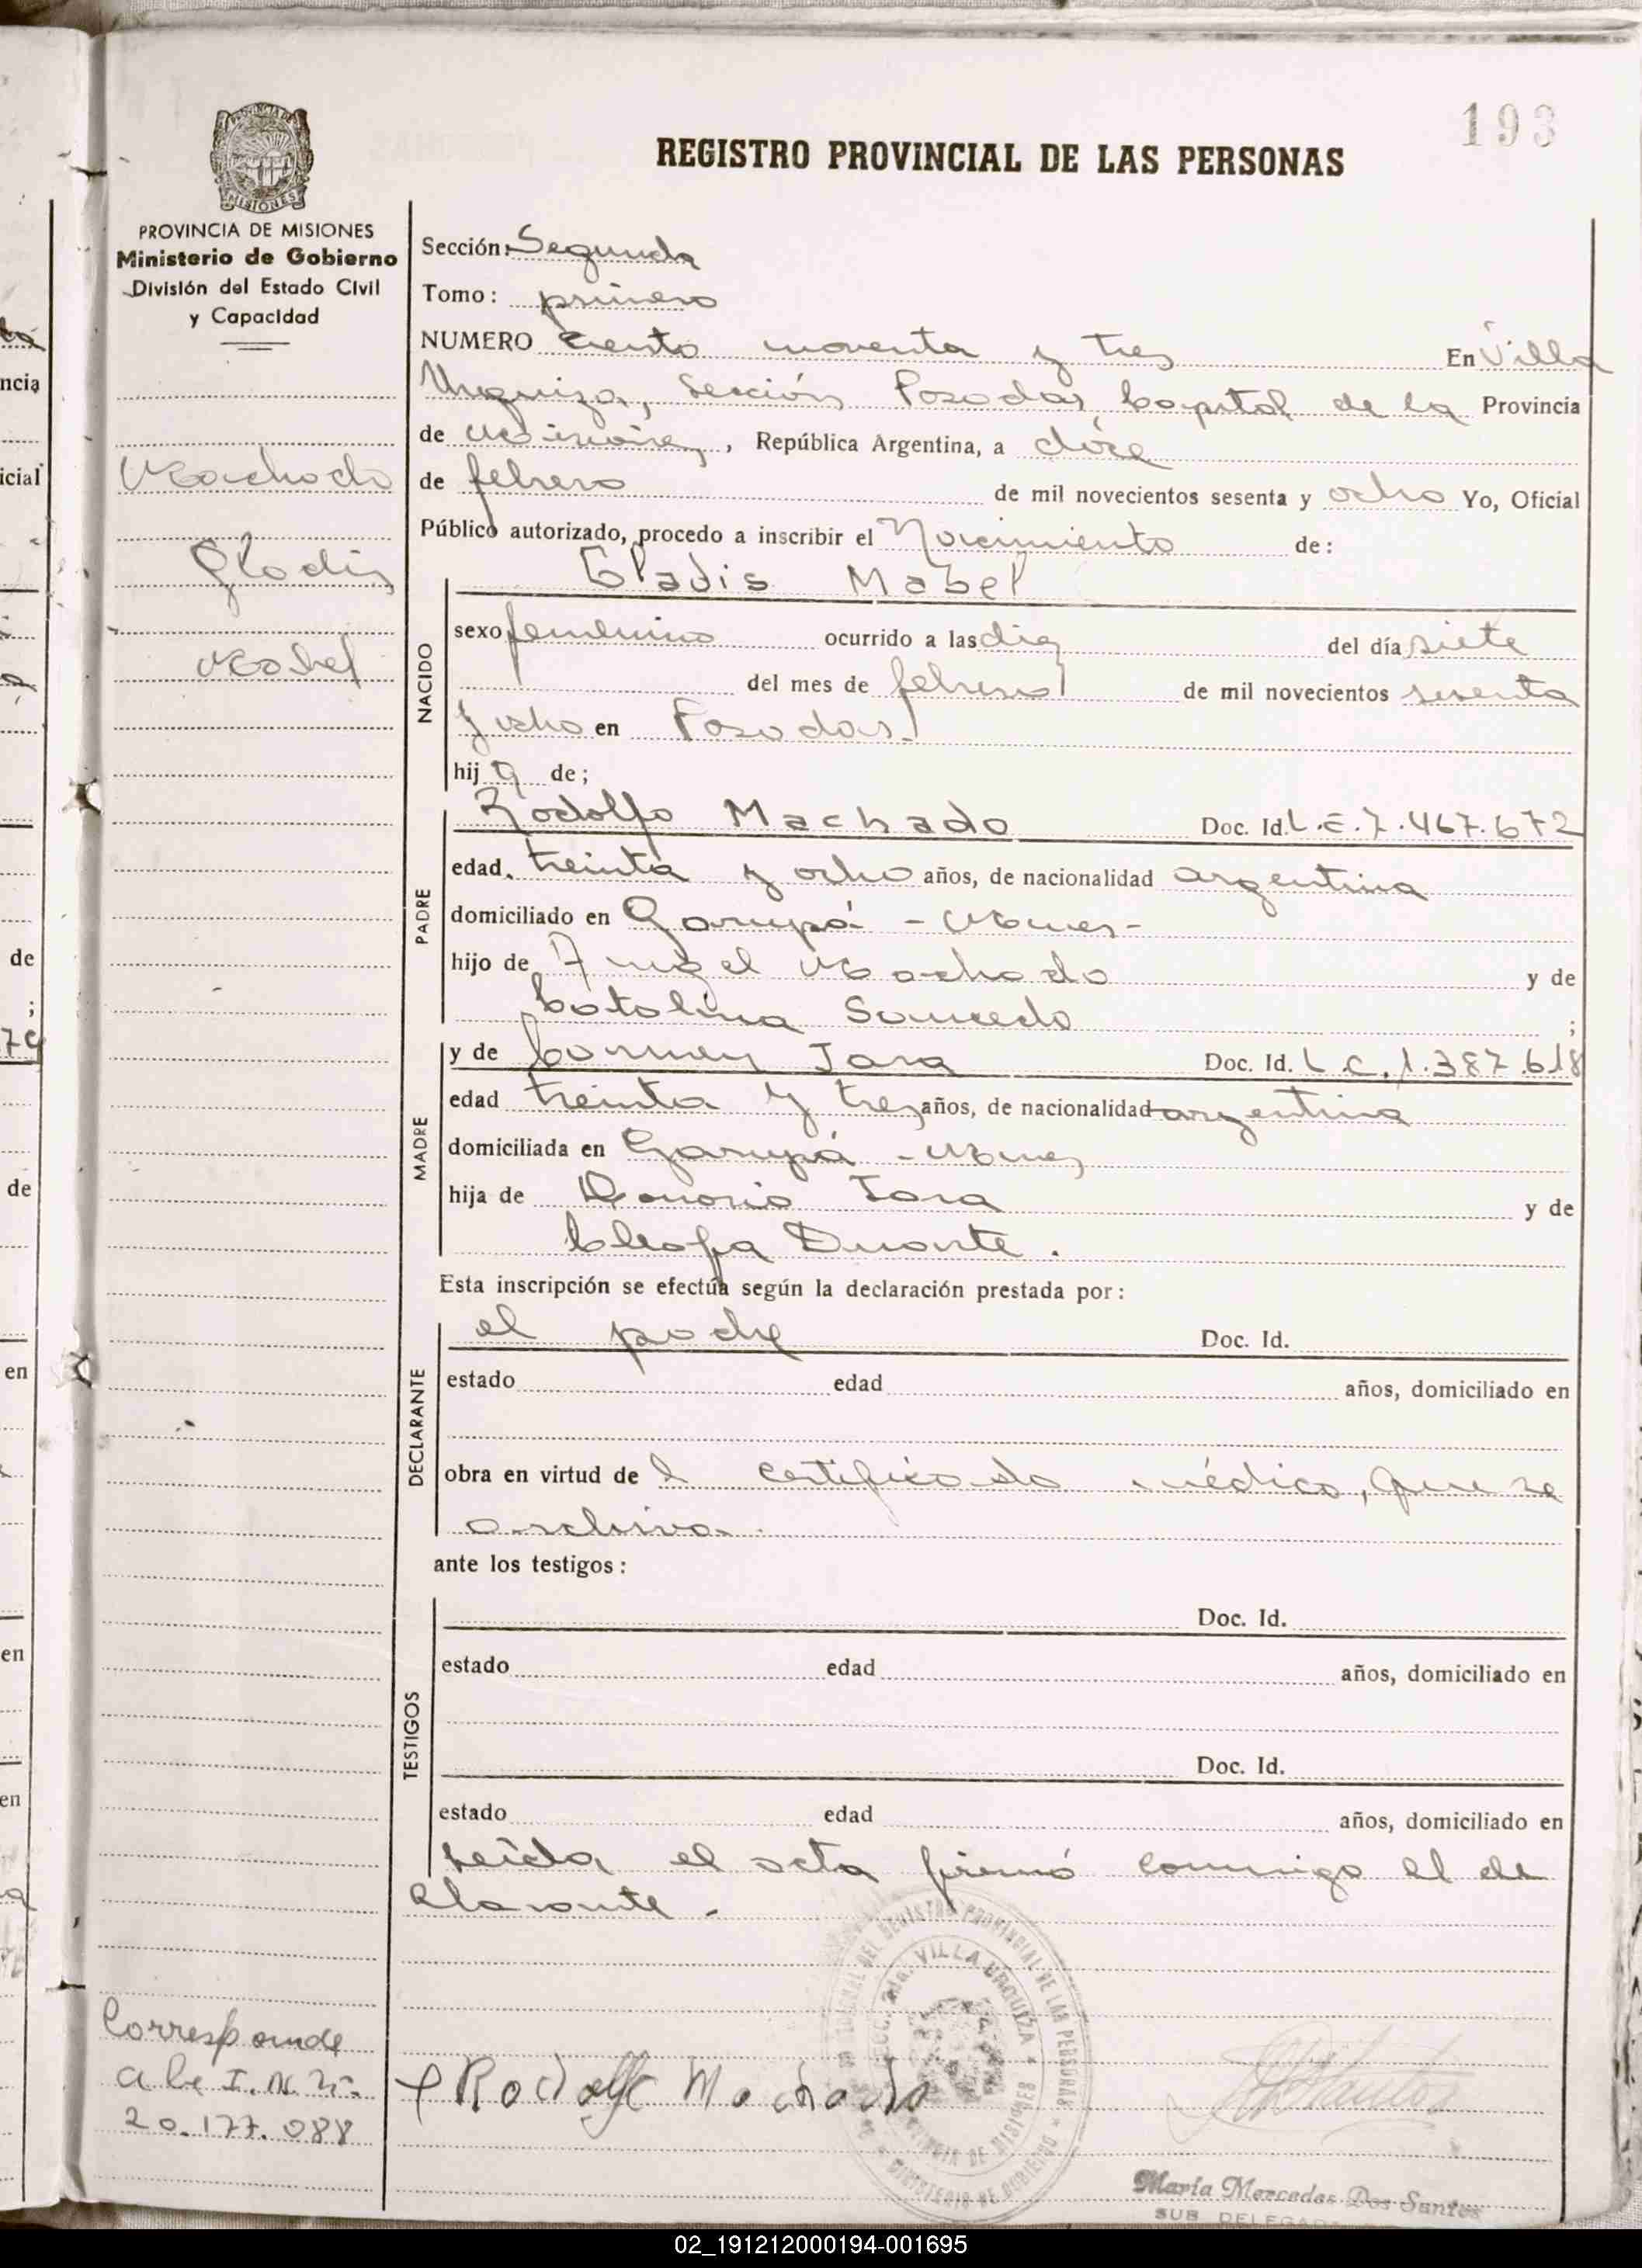 193
REGISTRO PROVINCIAL DE LAS PERSONAS
PROVINCIA DE MISIONES
Ministerio de Gobierno
División del Estado Civil
y Capacidad
Machado
Gladis
Mabel
Sección: Segunda
Tomo: primero
NUMERO Ciento noventa y tres En Villa
Urquiza, Sección Posadas, Capital de la Provincia
de Misiones, República Argentina, a doce
de febrero de mil novecientos sesenta y ocho Yo, Oficial
Público autorizado, procedo a inscribir el Nacimiento de:
Gladis Mabel
NACIDO
sexo femenino ocurrido a las diez del día siete
del mes de febrero de mil novecientos sesenta
y ocho en Posadas.
hij a de;
PADRE
Rodolfo Machado Doc. Id. L.E. 7.467.672
edad. treinta y ocho años, de nacionalidad argentina
domiciliado en Garupá - Mnes-
hijo de Angel Machado y de
Catalina Saucedo ;
MADRE
y de Carmen Jara Doc. Id. L.C. 1.387.618
edad treinta y tres años, de nacionalidad argentina
domiciliada en Garupá - Mnes
hija de Honorio Jara y de
Cleofa Duarte.
Esta inscripción se efectúa según la declaración prestada por:
DECLARANTE
el padre Doc. Id.
estado edad años, domiciliado en
obra en virtud de l certificado médico, que se
archiva.
ante los testigos:
TESTIGOS
Doc. Id.
estado edad años, domiciliado en
Doc. Id.
estado edad años, domiciliado en
Leída el acta firmó conmigo el de
clarante.-
Corresponde
a la I.N. N°
20.177.088
Rodolfo Machado
DEL REGISTRO PROVINCIAL DE LAS PERSONAS
SECC. 2da. VILLA URQUIZA
PROVINCIA DE MISIONES
MINISTERIO DE GOBIERNO
María Mercedes Dos Santos
SUB DELEGADA
ncia
icial
de
;
de
en
en
en
02_191212000194-001695